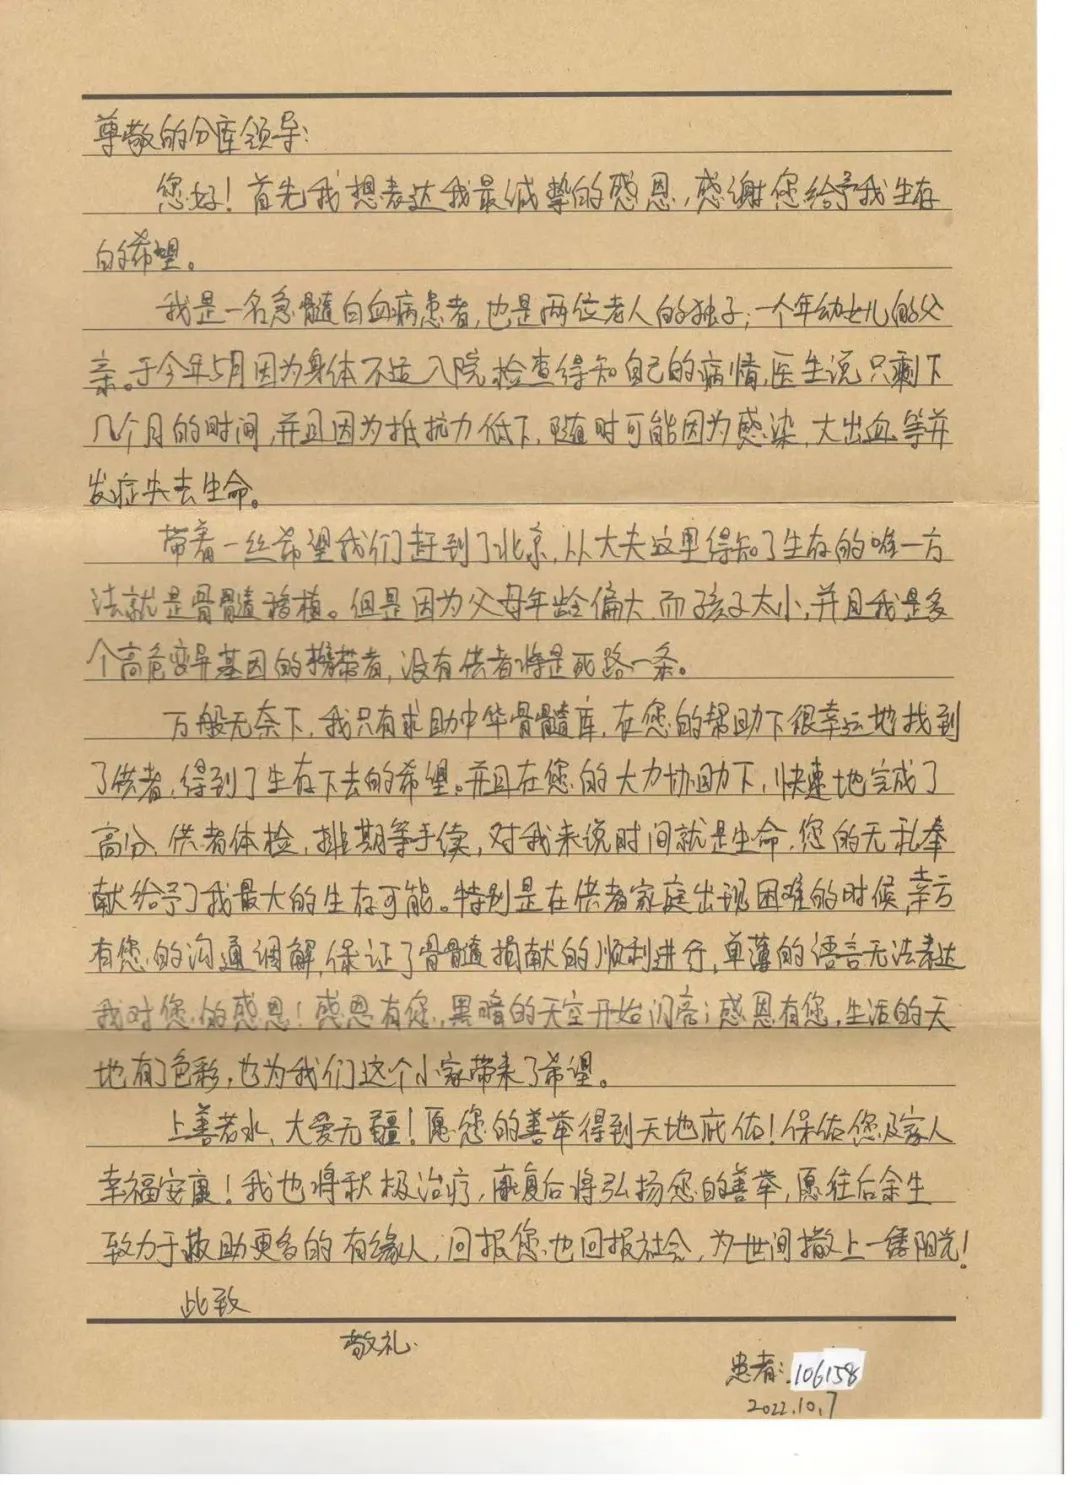 尊敬的分库领导:
您好！首先我想表达我最诚挚的感恩,感谢您给予我生存
的希望。
我是一名急髓白血病患者,也是两位老人的独子;一个年幼女儿的父
亲。于今年5月因为身体不适入院,检查得知自己的病情,医生说只剩下
几个月的时间,并且因为抵抗力低下,随时可能因为感染,大出血等并
发症失去生命。
带着一丝希望我们赶到了北京,从大夫这里得知了生存的唯一方
法就是骨髓移植。但是因为父母年龄偏大,而孩子太小,并且我是多
个高危变异基因的携带者,没有供者将是死路一条。
万般无奈下,我只有求助中华骨髓库,在您的帮助下很幸运地找到
了供者,得到了生存下去的希望。并且在您的大力协助下,快速地完成了
高分、供者体检,排期等手续,对我来说时间就是生命,您的无私奉
献给予了我最大的生存可能。特别是在供者家庭出现困难的时候,幸亏
有您的沟通调解,保证了骨髓捐献的顺利进行,单薄的语言无法表达
我对您的感恩！感恩有您,黑暗的天空开始闪亮;感恩有您,生活的天
地有了色彩,也为我们这个小家带来了希望。
上善若水,大爱无疆！愿您的善举得到天地庇佑！保佑您及家人
幸福安康！我也将积极治疗,康复后将弘扬您的善举,愿往后余生
致力于救助更多的有缘人,回报您也回报社会,为世间撒上一缕阳光！
此致
敬礼.
患者:106158
2022.10.7